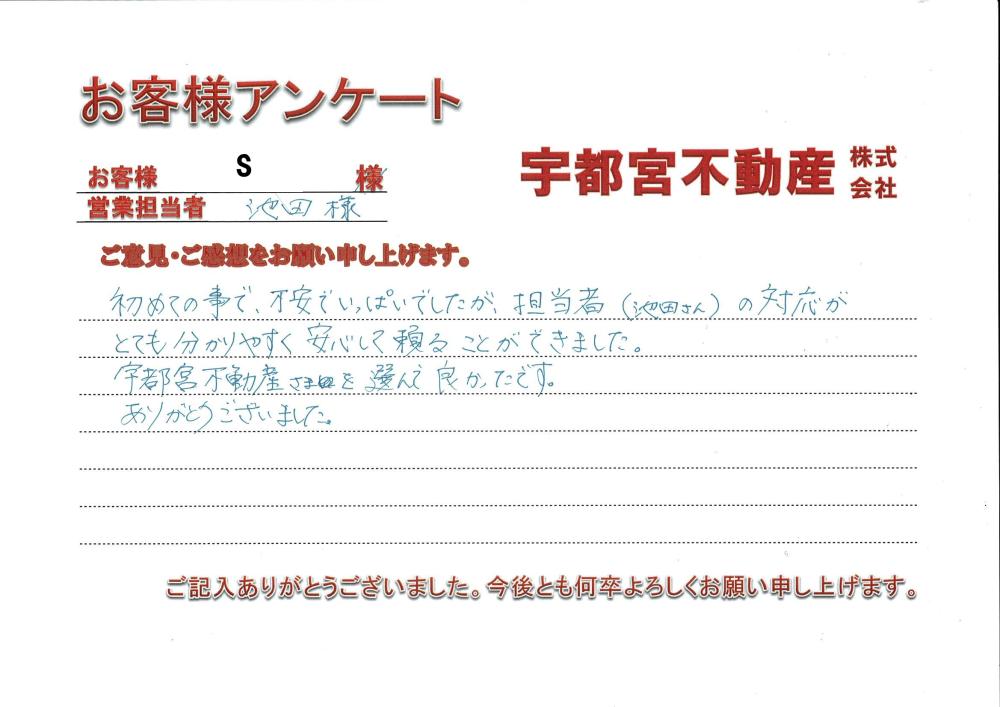 お客様アンケート
お客様 S 様
宇都宮不動産 株式会社
営業担当者 池田様
ご意見・ご感想をお願い申し上げます。
初めての事で、不安でいっぱいでしたが、担当者(池田さん)の対応が
とても分かりやすく安心して頼ることができました。
宇都宮不動産さまを選んで良かったです。
ありがとうございました。
ご記入ありがとうございました。今後とも何卒よろしくお願い申し上げます。